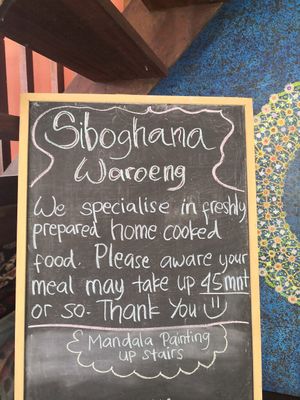 Siboghana
Waroeng
We specialise in freshly
prepared home cooked
food. Please aware your
meal may take up 45mnt
or so. Thank You
Mandala Painting
UP stairs